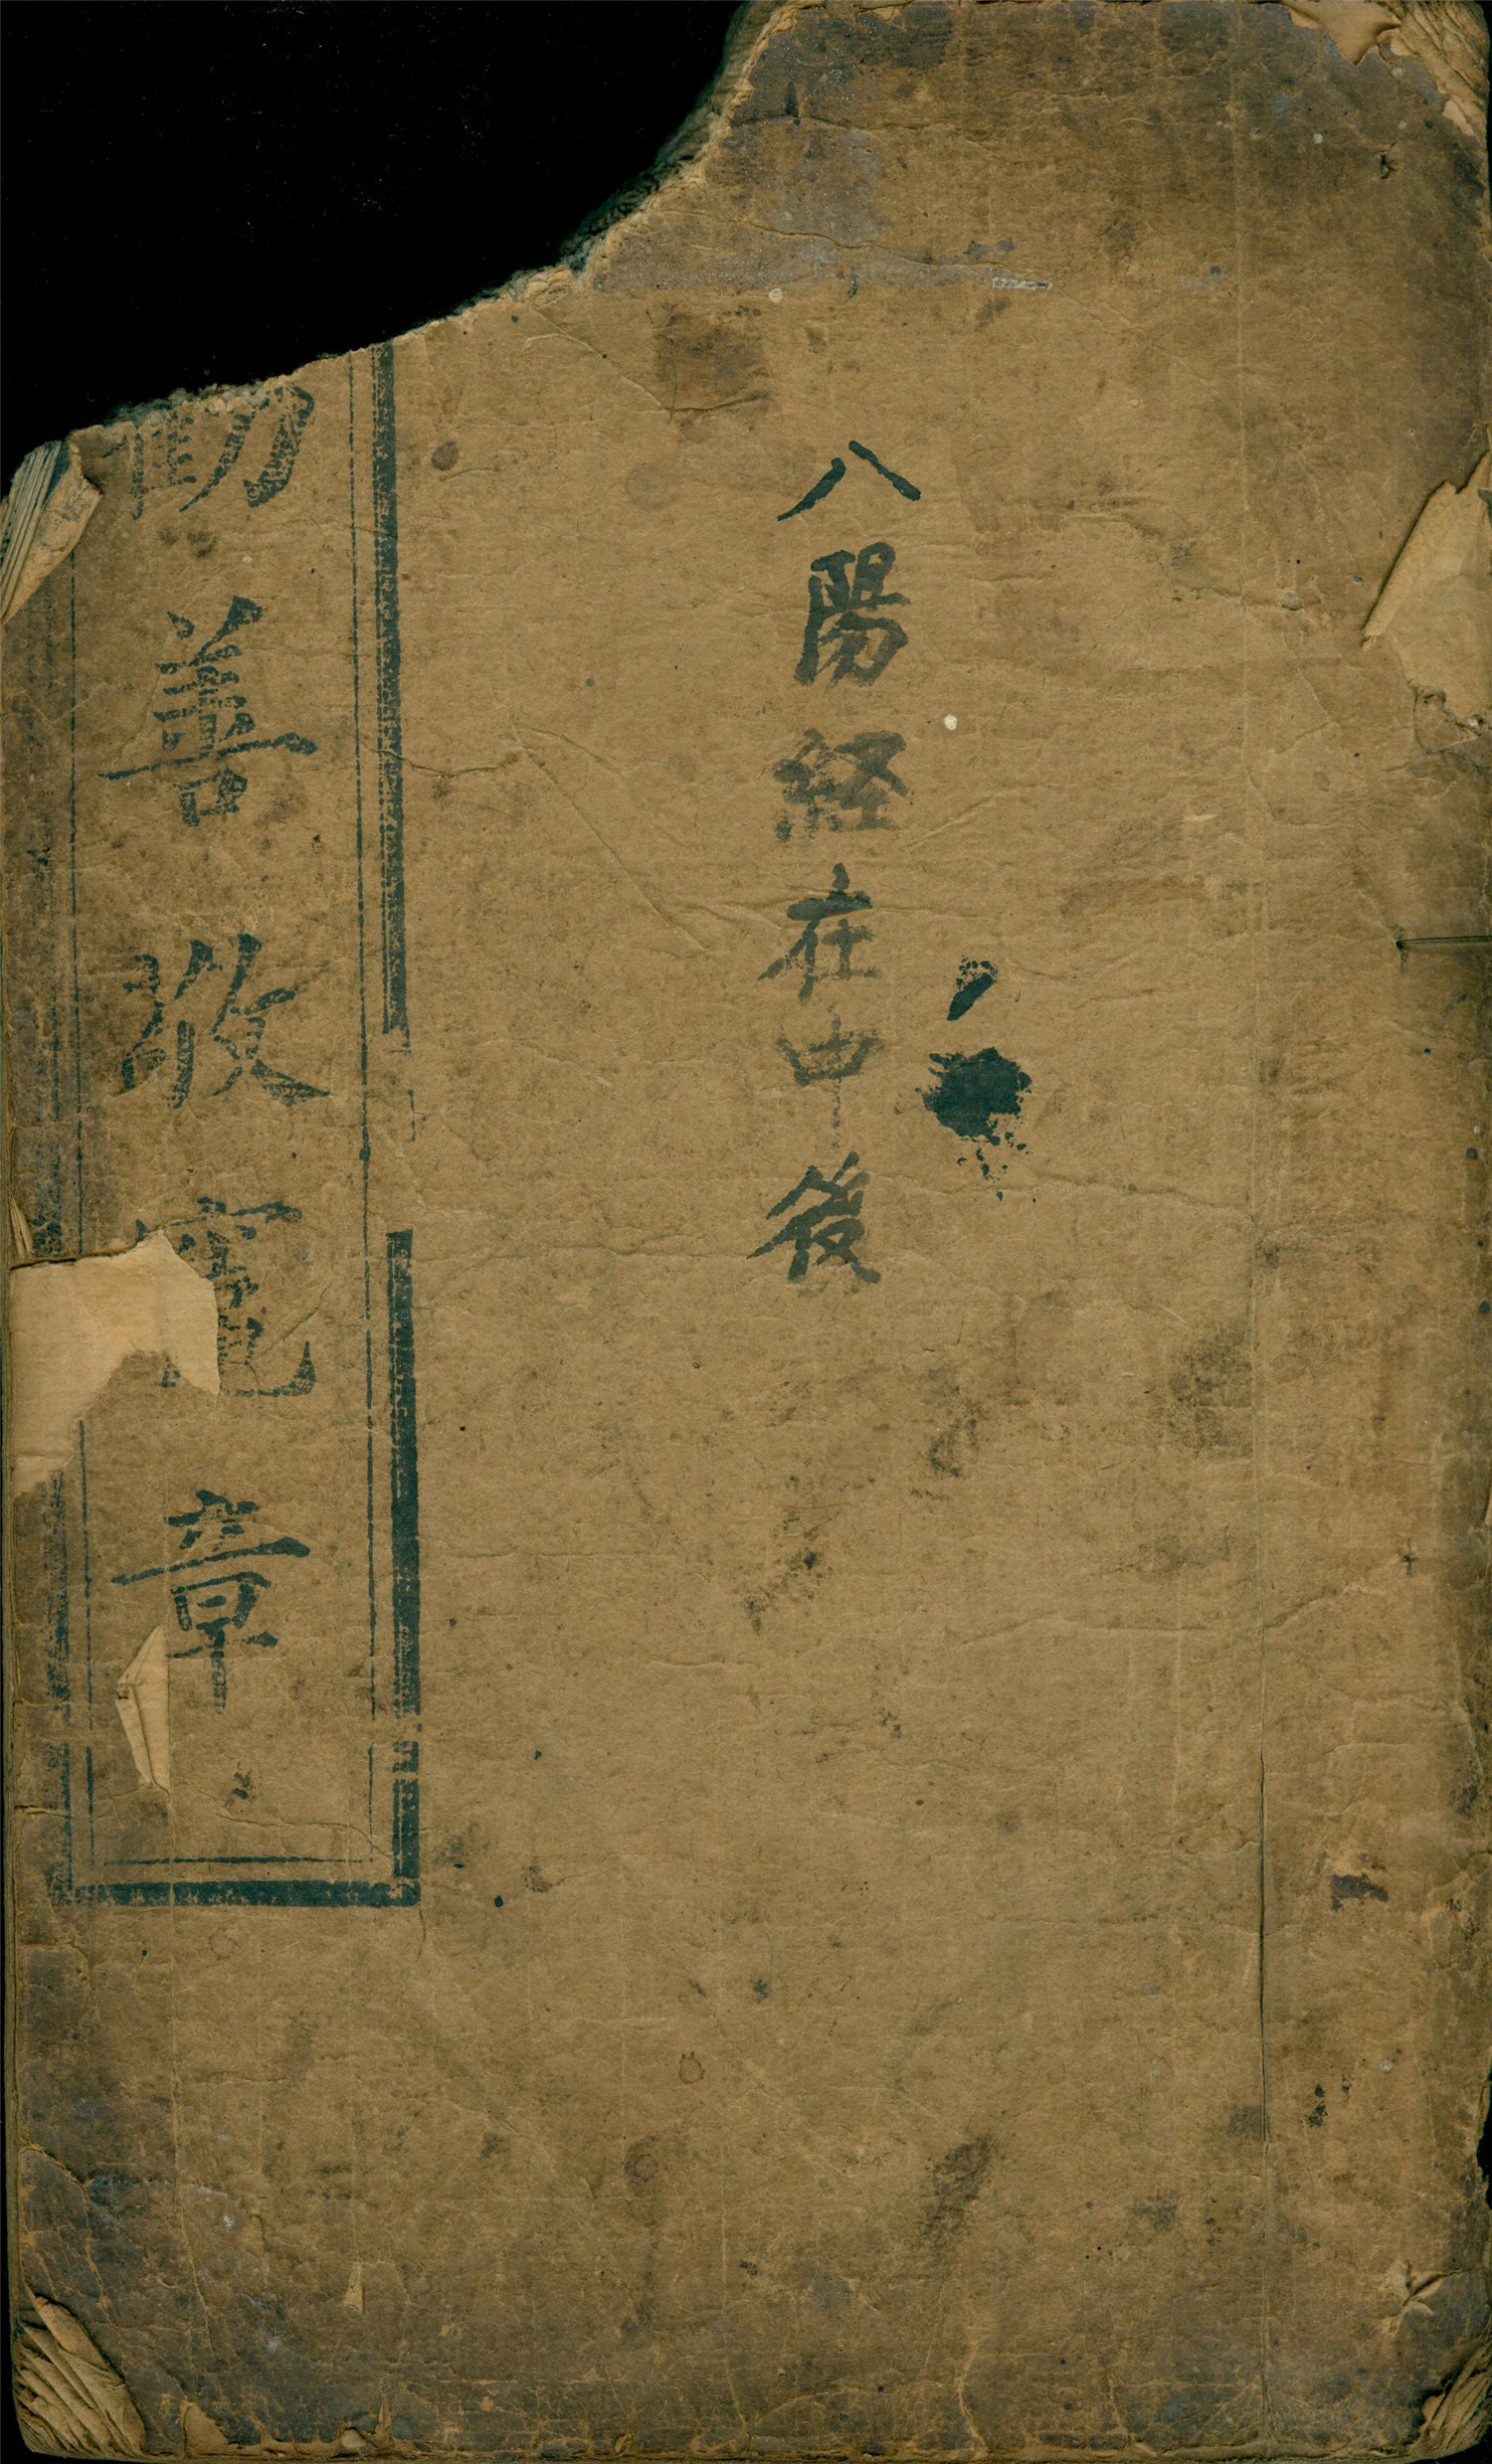 八陽経在中後
勸善敬竈章